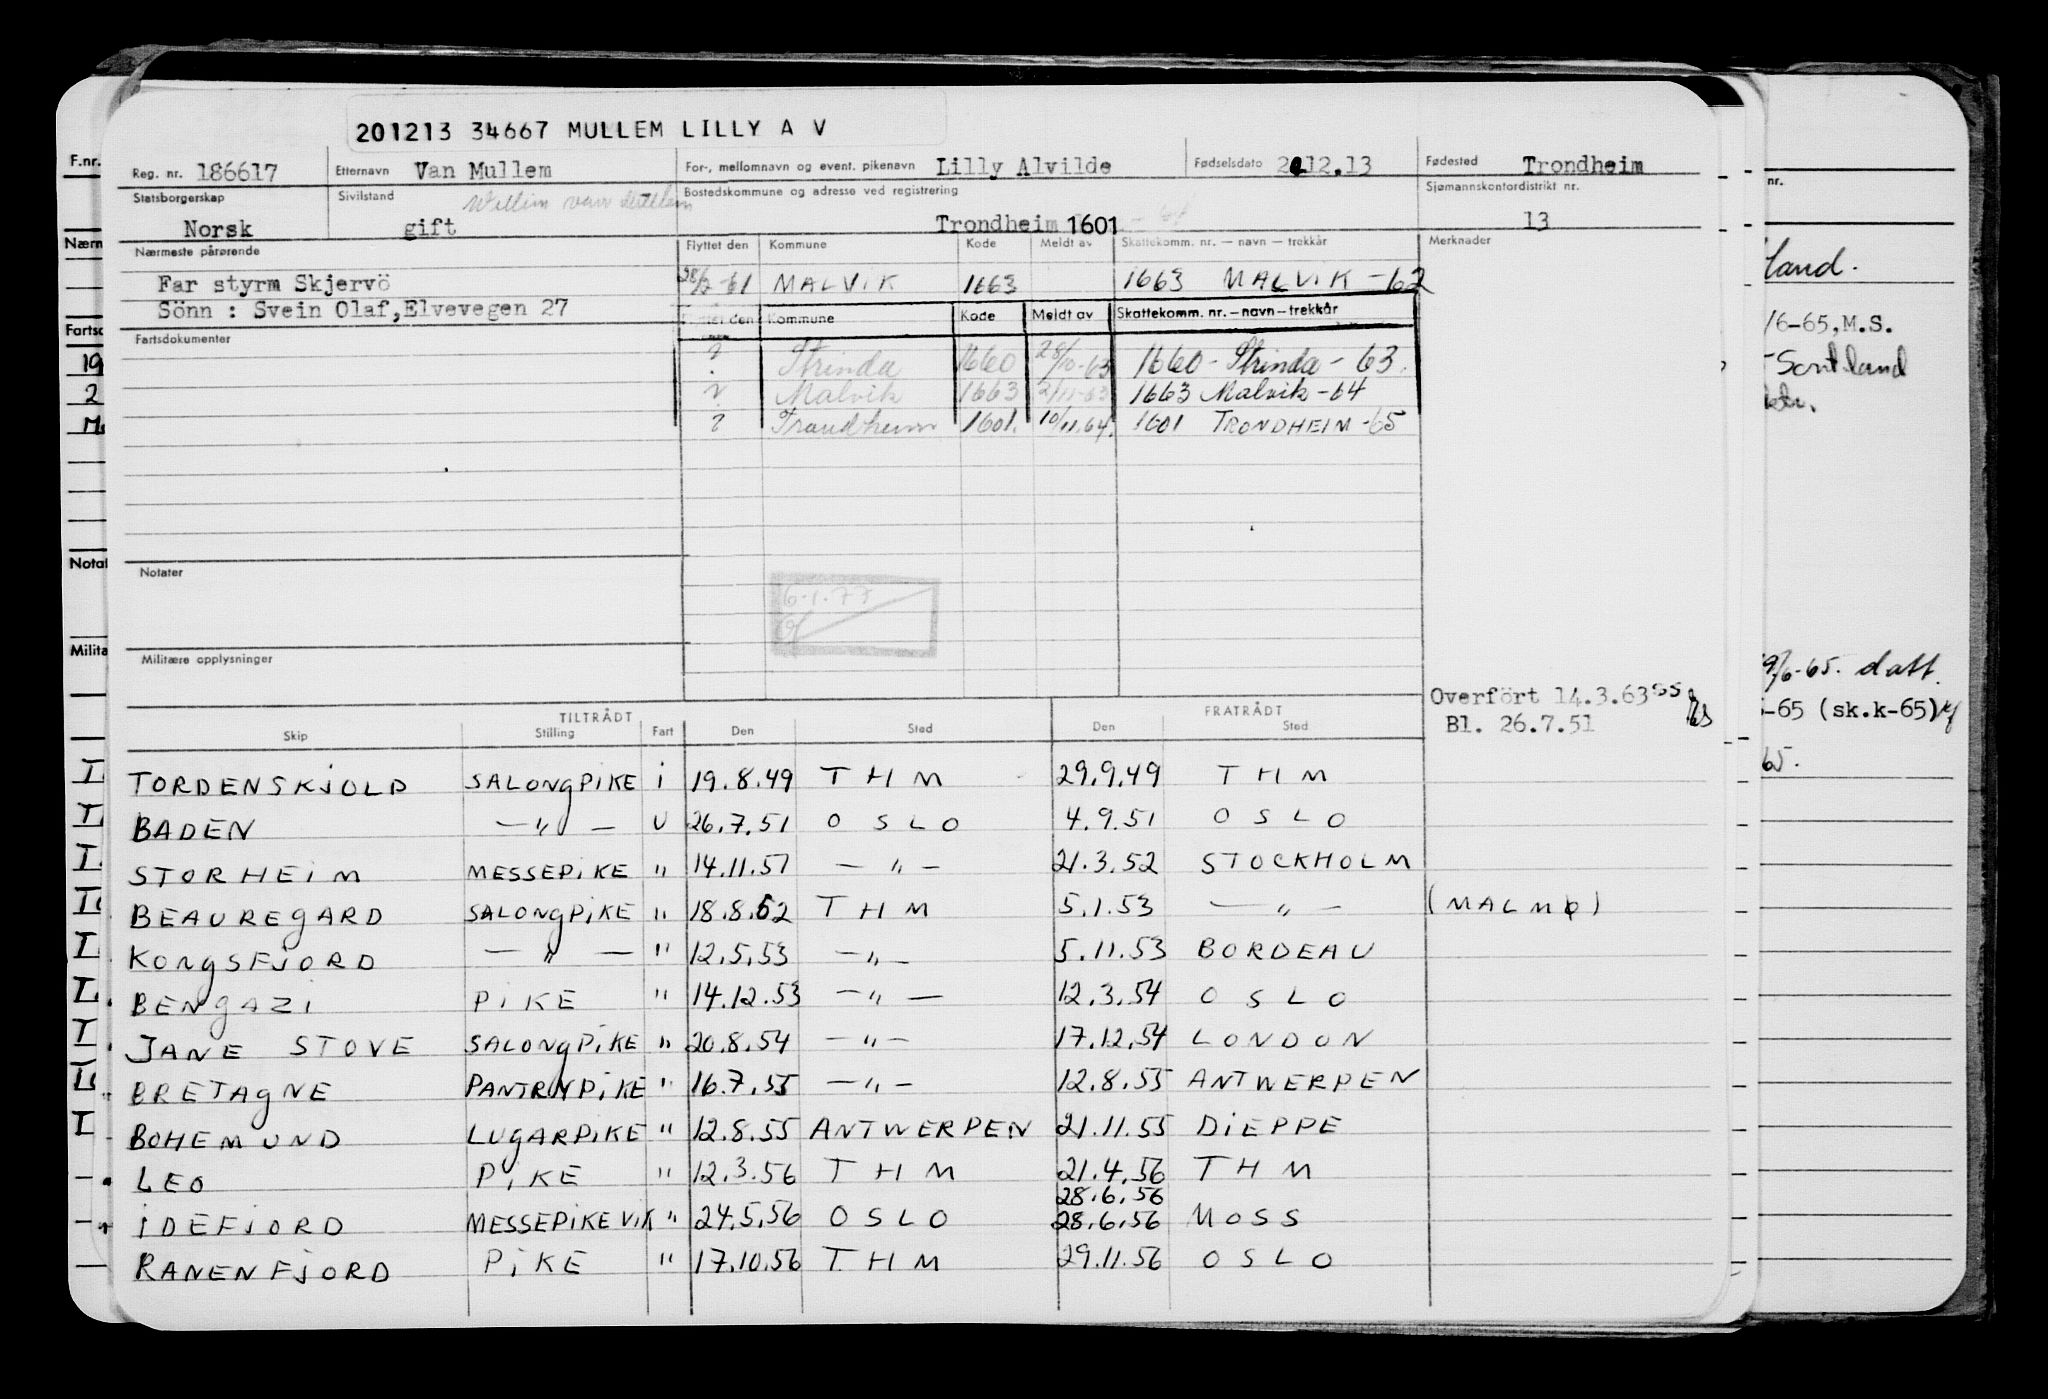 201213 34667 MULLEM LILLY A V
Reg. nr. 186617 Etternavn Van Mullem For-, mellomnavn og event. pikenavn Lilly Alvilde Fødselsdato 2012.13 Fødested Trondheim
Statsborgerskap Norsk Sivilstand gift Bostedskommune og adresse ved registrering Trondheim 1601 Sjømannskontordistrikt nr. 13
Nærmeste pårørende Flyttet den Kommune Kode Meldt av Skattekomm. nr. — navn — trekkår Merknader
Far styrm Skjervö 28/2-61 MALVIK 1663 1663 MALVIK -62
Sönn : Svein Olaf,Elvevegen 27
Fartsdokumenter Kommune Kode Meldt av Skattekomm. nr. — navn — trekkår
? Strinda 1660 28/10-63 1660 - Strinda - 63.
? Malvik 1663 2/11-63 1663 Malvik -64
? Trondheim 1601. 10/11.64. 1601 TRONDHEIM -65
Notater
6.1.77
Militære opplysninger
Overfört 14.3.63 SS
Bl. 26.7.51
TILTRÅDT FRATRÅDT
Skip Stilling Fart Den Sted Den Sted
TORDENSKJOLD SALONGPIKE i 19.8.49 THM 29.9.49 THM
BADEN — " — U 26.7.51 OSLO 4.9.51 OSLO
STORHEIM MESSEPIKE " 14.11.51 — " — 21.3.52 STOCKHOLM
BEAUREGARD SALONGPIKE " 18.8.52 THM 5.1.53 — " — (MALMØ)
KONGSFJORD — " — " 12.5.53 — " — 5.11.53 BORDEAU
BENGAZI PIKE " 14.12.53 — " — 12.3.54 OSLO
JANE STOVE SALONGPIKE " 20.8.54 — " — 17.12.54 LONDON
BRETAGNE PANTRYPIKE " 16.7.55 — " — 12.8.55 ANTWERPEN
BOHEMUND LUGARPIKE " 12.8.55 ANTWERPEN 21.11.55 DIEPPE
LEO PIKE " 12.3.56 THM 21.4.56 THM
28.6.56
IDEFJORD MESSEPIKE VIK " 24.5.56 OSLO 28.6.56 MOSS
RANENFJORD PIKE " 17.10.56 THM 29.11.56 OSLO
F.nr.
Nærm
Fartsd
19
2
Notat
Milita
nr.
land.
/6-65,M.S.
Scotland
9/6-65. datt.
-65 (sk.k-65)
65.